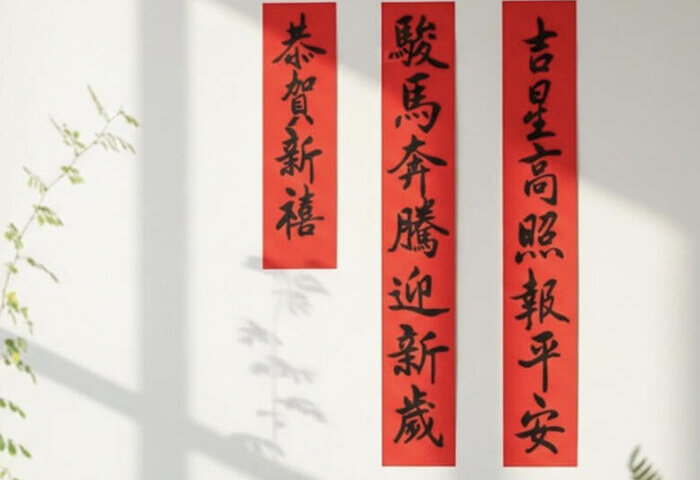 吉星高照報平安
駿馬奔騰迎新歲
恭賀新禧